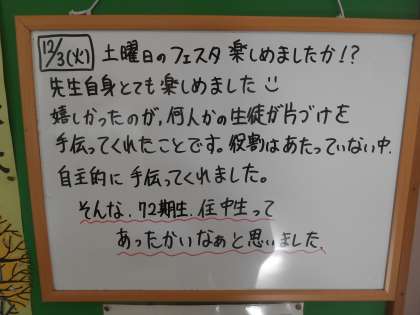 12/3(火) 土曜日のフェスタ楽しめましたか!?
先生自身とても楽しめました
嬉しかったのが、何人かの生徒が片づけを
手伝ってくれたことです。役割はあたっていない中、
自主的に手伝ってくれました。
そんな、72期生、住中生って
あったかいなぁと思いました。